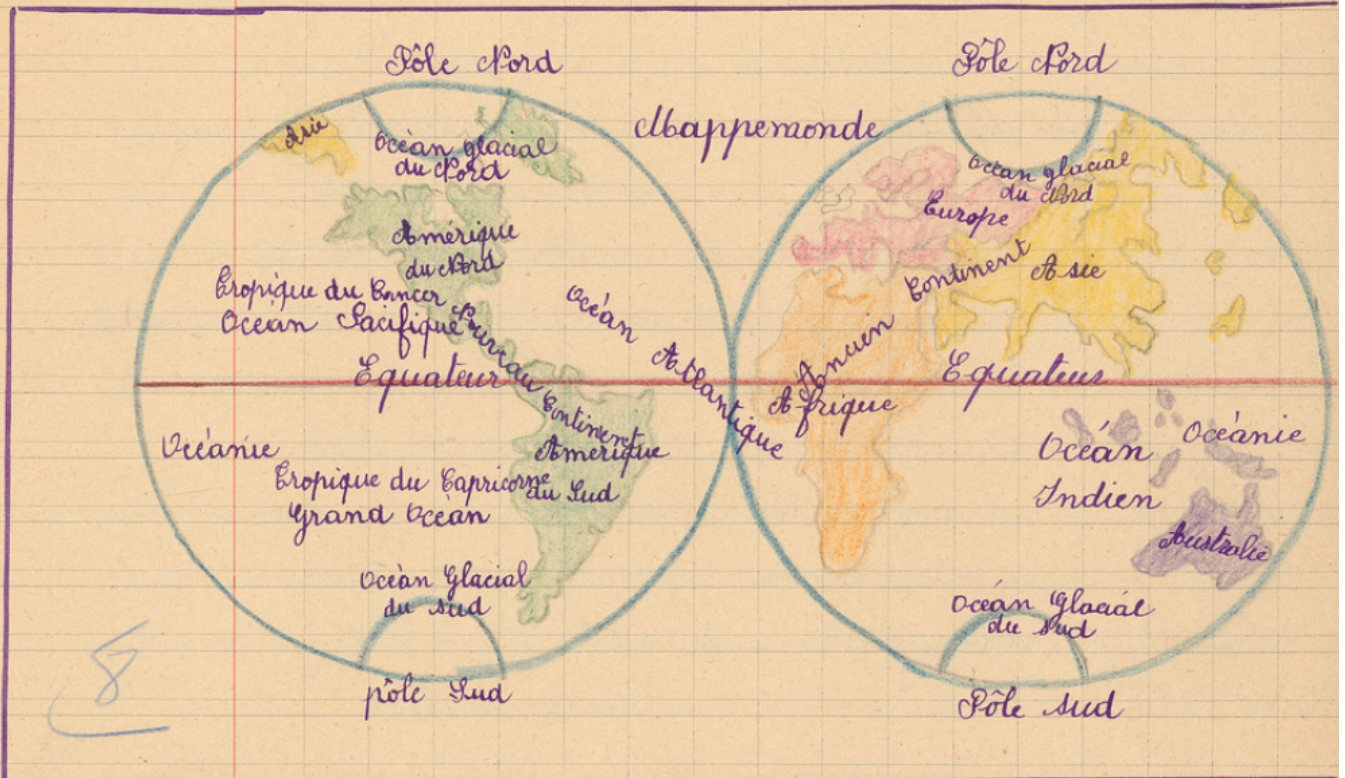 Pôle Nord
Pôle Nord
Mappemonde
Asie
Océan glacial
du Nord
Amérique
du Nord
Tropique du Cancer
Océan Pacifique
Nouveau Continent
Océan Atlantique
Equateur
Océanie
Amérique
du Sud
Tropique du Capricorne
Grand Océan
Océan Glacial
du sud
pôle Sud
Océan glacial
du Nord
Europe
Ancien Continent
Asie
Afrique
Equateur
Océan
Indien
Océanie
Australie
Océan Glacial
du Sud
Pôle sud
8